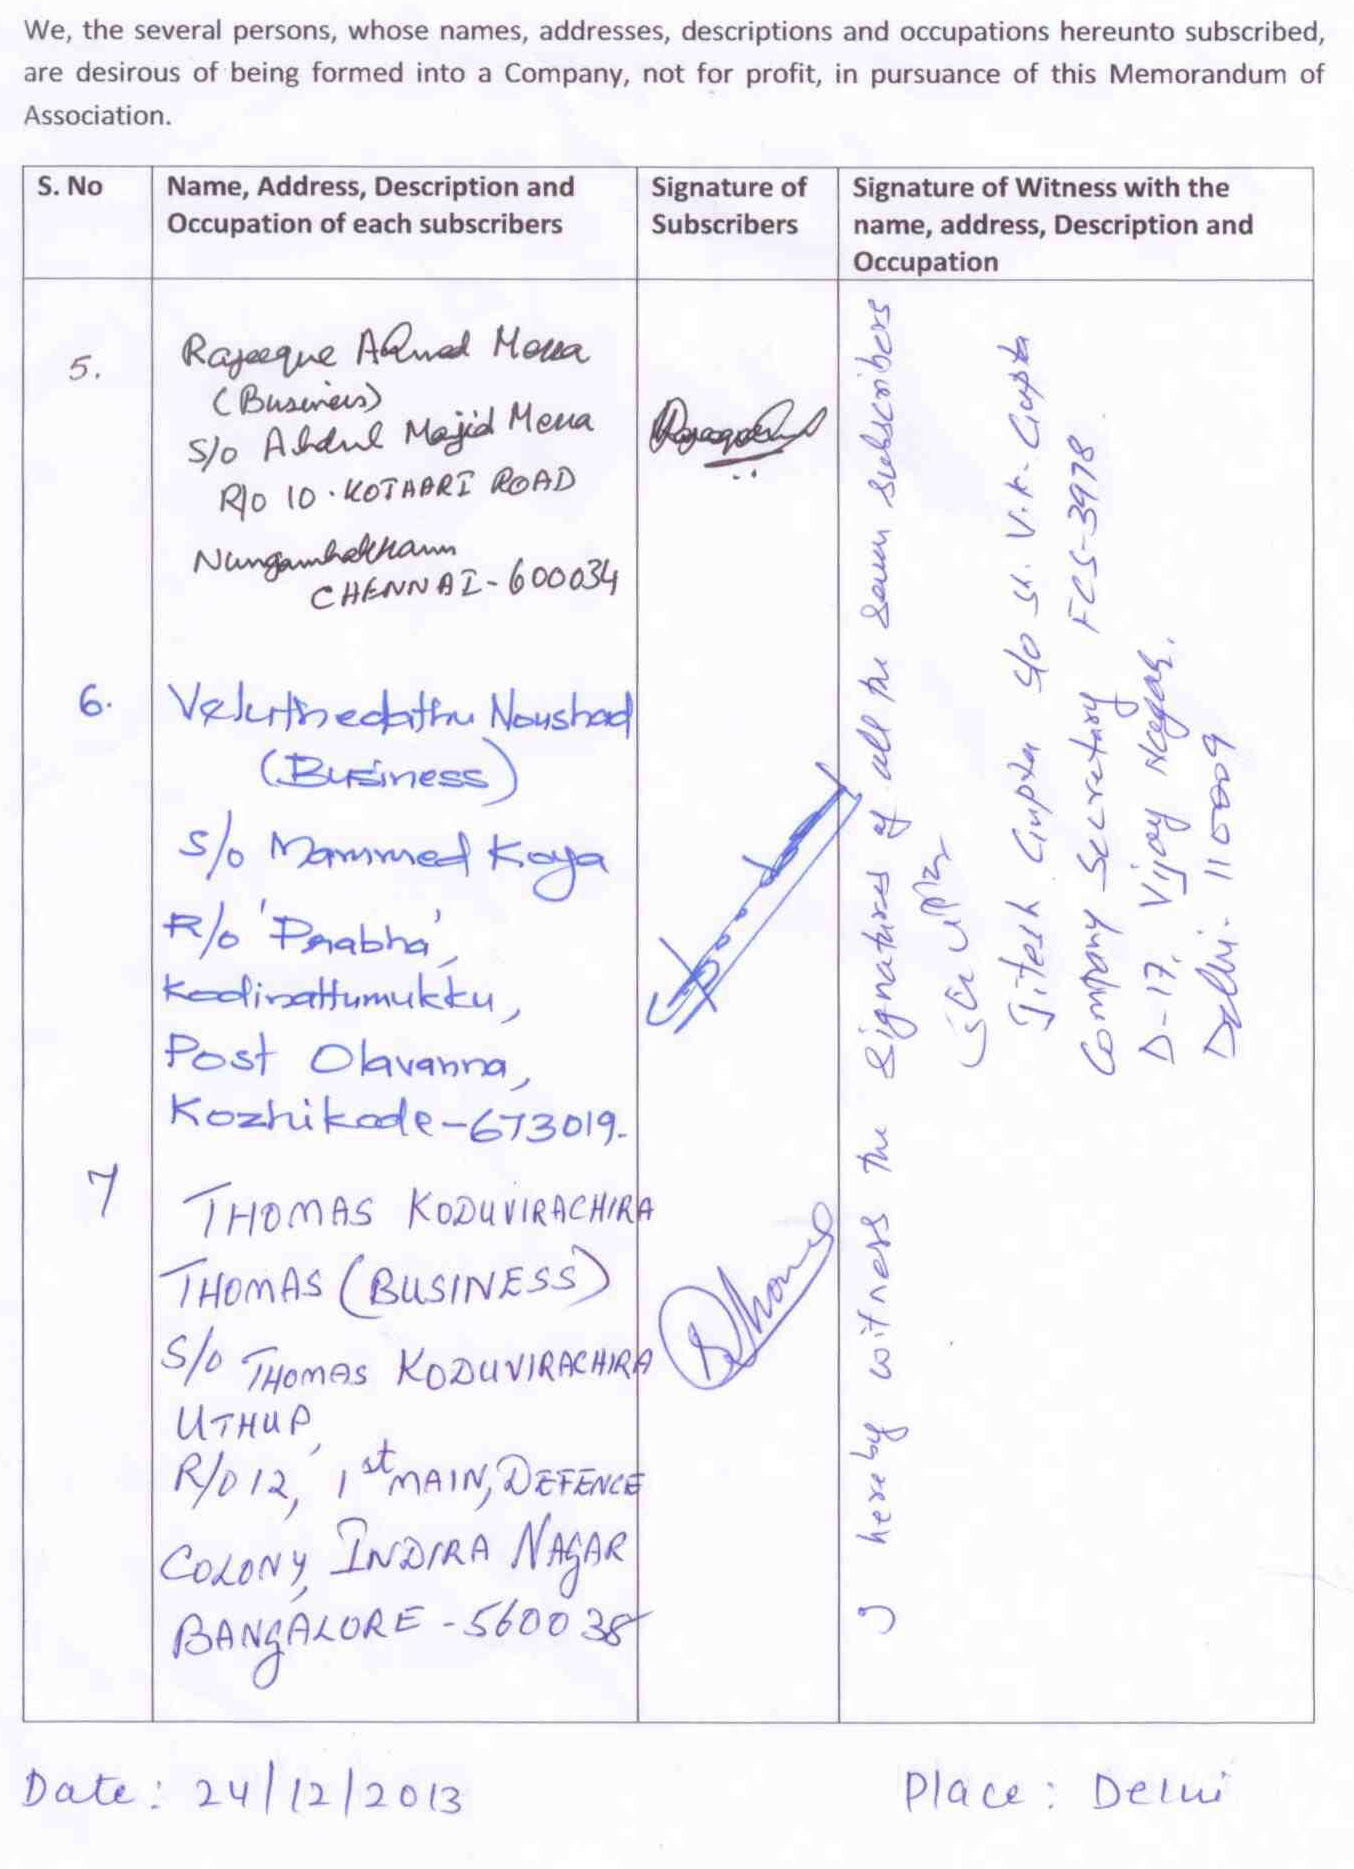 We, the several persons, whose names, addresses, descriptions and occupations hereunto subscribed,
are desirous of being formed into a Company, not for profit, in pursuance of this Memorandum of
Association.
S. No
Name, Address, Description and
Occupation of each subscribers
Signature of
Subscribers
Signature of Witness with the
name, address, Description and
Occupation
5.
Rafeeque Ahmed Mecca
(Business)
S/o Abdul Majid Mecca
R/o 10. KOTHARI ROAD
Nungambakkam
CHENNAI-600034
6.
Veluthedathu Noushad
(Business)
S/o Mammed Koya
R/o 'Prabha',
Kodinattumukku,
Post Olavanna,
Kozhikode-673019.
7
THOMAS KODUVIRACHIRA
THOMAS (BUSINESS)
S/O THOMAS KODUVIRACHIRA
UTHUP,
R/O 12, 1st MAIN, DEFENCE
COLONY, INDIRA NAGAR
BANGALORE - 560038
I hereby witness the Signatures of all the Seven Subscribers
Jitesh Gupta S/o Sh. V.K. Gupta
Company Secretary FCS-3978
D-17, Vijay Nagar,
Delhi- 110009
Date: 24/12/2013
Place: Delhi